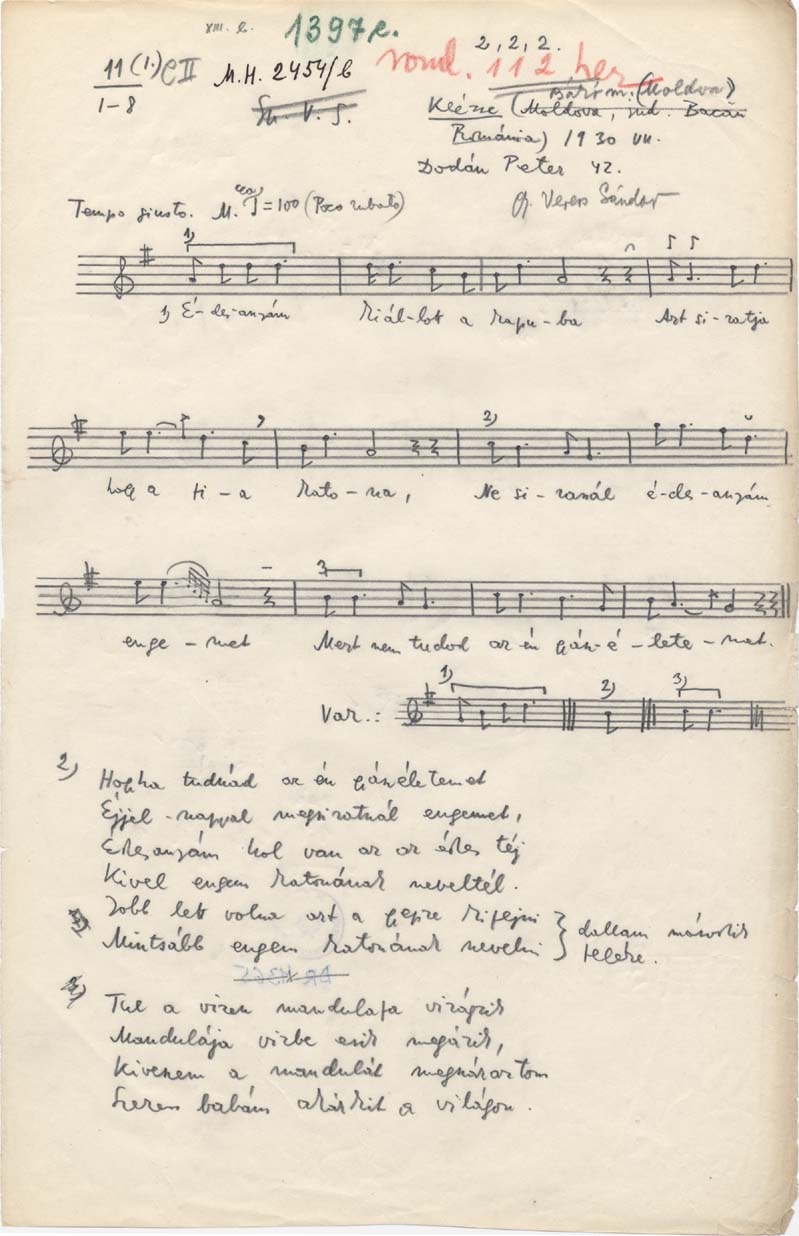 XIII. b.
1397e.
2, 2, 2.
11 (1.) C II
1–8
M.H. 2454/b
rond. 112 her
Sh. V. S.
Báró m. (Moldva)
Klézse (Moldova, jud. Bacău
Románia) 1930 VII.
Dodán Péter 42.
Tempo giusto. M. = 100 (Poco rubato)
gy. Veress Sándor
1)
1) É-des-anyám kiál-lott a kapu-ba Azt si-ratja
2)
hogy a fi-a kato-na, Ne si-ranál é-des-anyám
3
enge-met Mert nem tudod az én gász-é-lete-met.
Var.: 1) 2) 3)
2) Hogyha tudnád az én gászéletemet
Éjjel-nappal megsiratnál engemet,
Édesanyám hol van az az édes téj
Kivel engem katonának neveltél.
Jobb lett volna azt a gyepre kifejni
Mintsább engem katonának nevelni } dallam második
felére.
Tul a vizen mandulafa virágzik
Mandulája vizbe esik megázik,
Kiveszem a mandulát megszárasztom
Szerem babám akárkit a világon.